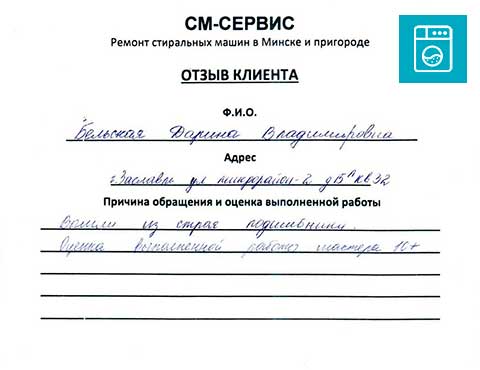 СМ-СЕРВИС
Ремонт стиральных машин в Минске и пригороде
ОТЗЫВ КЛИЕНТА
Ф.И.О.
Бельская Дарина Владимировна
Адрес
г Заславль ул микрорайон-2 д15ᴬ кв 92
Причина обращения и оценка выполненной работы
Вышли из строя подшипники.
Оценка выполненной работы мастера 10+